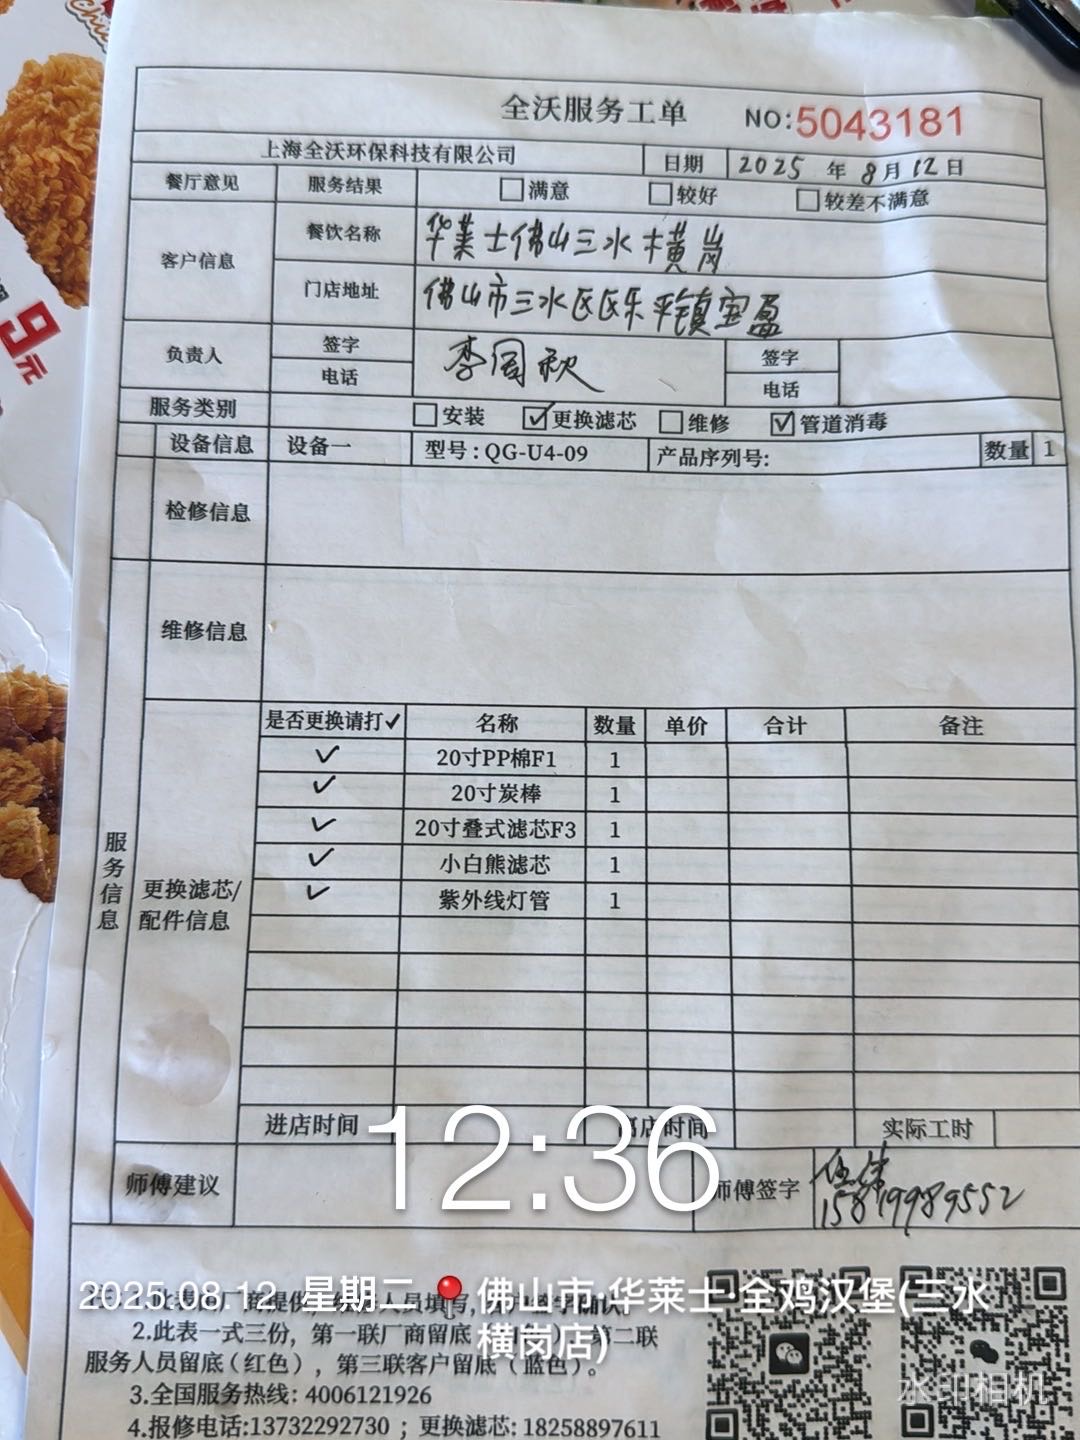 9元
全沃服务工单 NO:5043181
上海全沃环保科技有限公司 日期 2025 年 8 月 12 日
餐厅意见 服务结果 □满意 □较好 □较差不满意
客户信息 餐饮名称 华莱士佛山三水横岗
门店地址 佛山市三水区区乐平镇宝盈
负责人 签字 电话 签字 电话
服务类别 □安装 ☑更换滤芯 □维修 ☑管道消毒
设备信息 设备一 型号:QG-U4-09 产品序列号: 数量 1
检修信息
维修信息
服务信息
更换滤芯/配件信息
是否更换请打✓ 名称 数量 单价 合计 备注
✓ 20寸PP棉F1 1
✓ 20寸炭棒 1
✓ 20寸叠式滤芯F3 1
✓ 小白熊滤芯 1
✓ 紫外线灯管 1
进店时间 店时间 实际工时
12:36
师傅建议 师傅签字 15819989552
2025.08.12 星期二 佛山市·华莱士·全鸡汉堡(三水横岗店)
2.此表一式三份，第一联厂商留底 第二联
服务人员留底(红色)，第三联客户留底(蓝色)。
3.全国服务热线: 4006121926
4.报修电话:13732292730；更换滤芯: 18258897611
水印相机